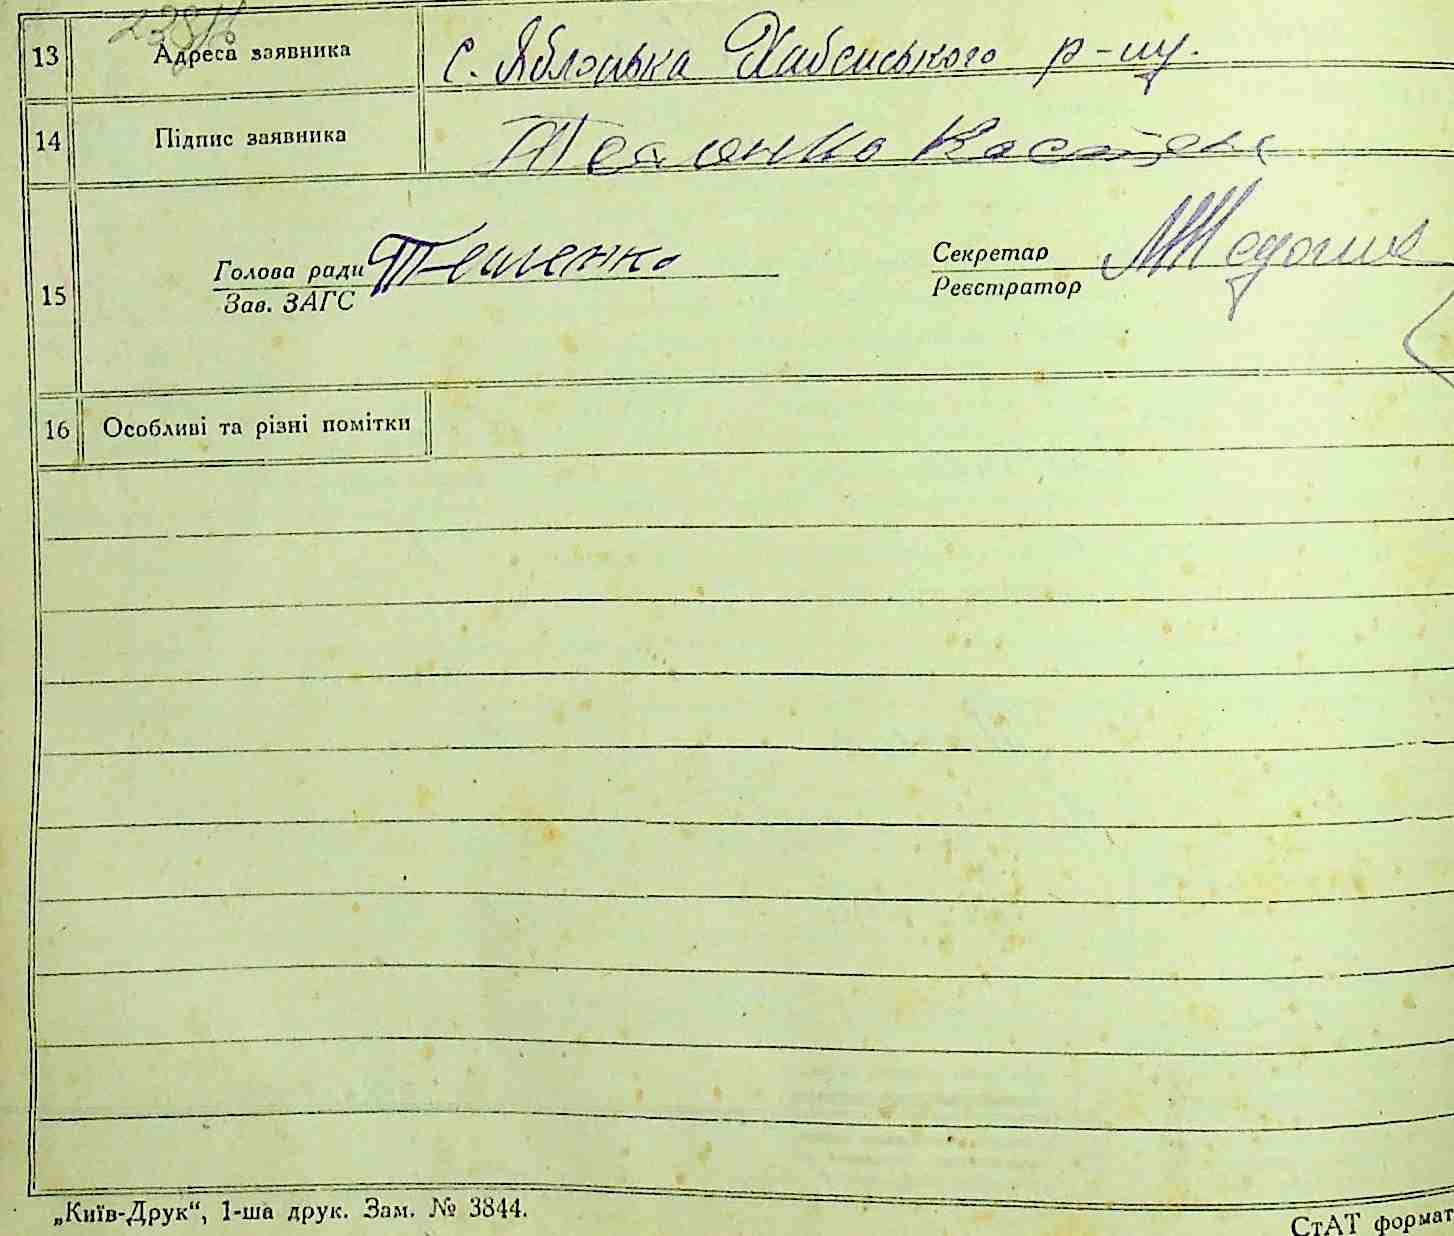 13 Адреса заявника с. Яблонька Хабенського р-ну.
14 Підпис заявника
15 Голова ради Секретар
Зав. ЗАГС Реєстратор
16 Особливі та різні помітки
„Київ-Друк“, 1-ша друк. Зам. № 3844.
СтАТ формат